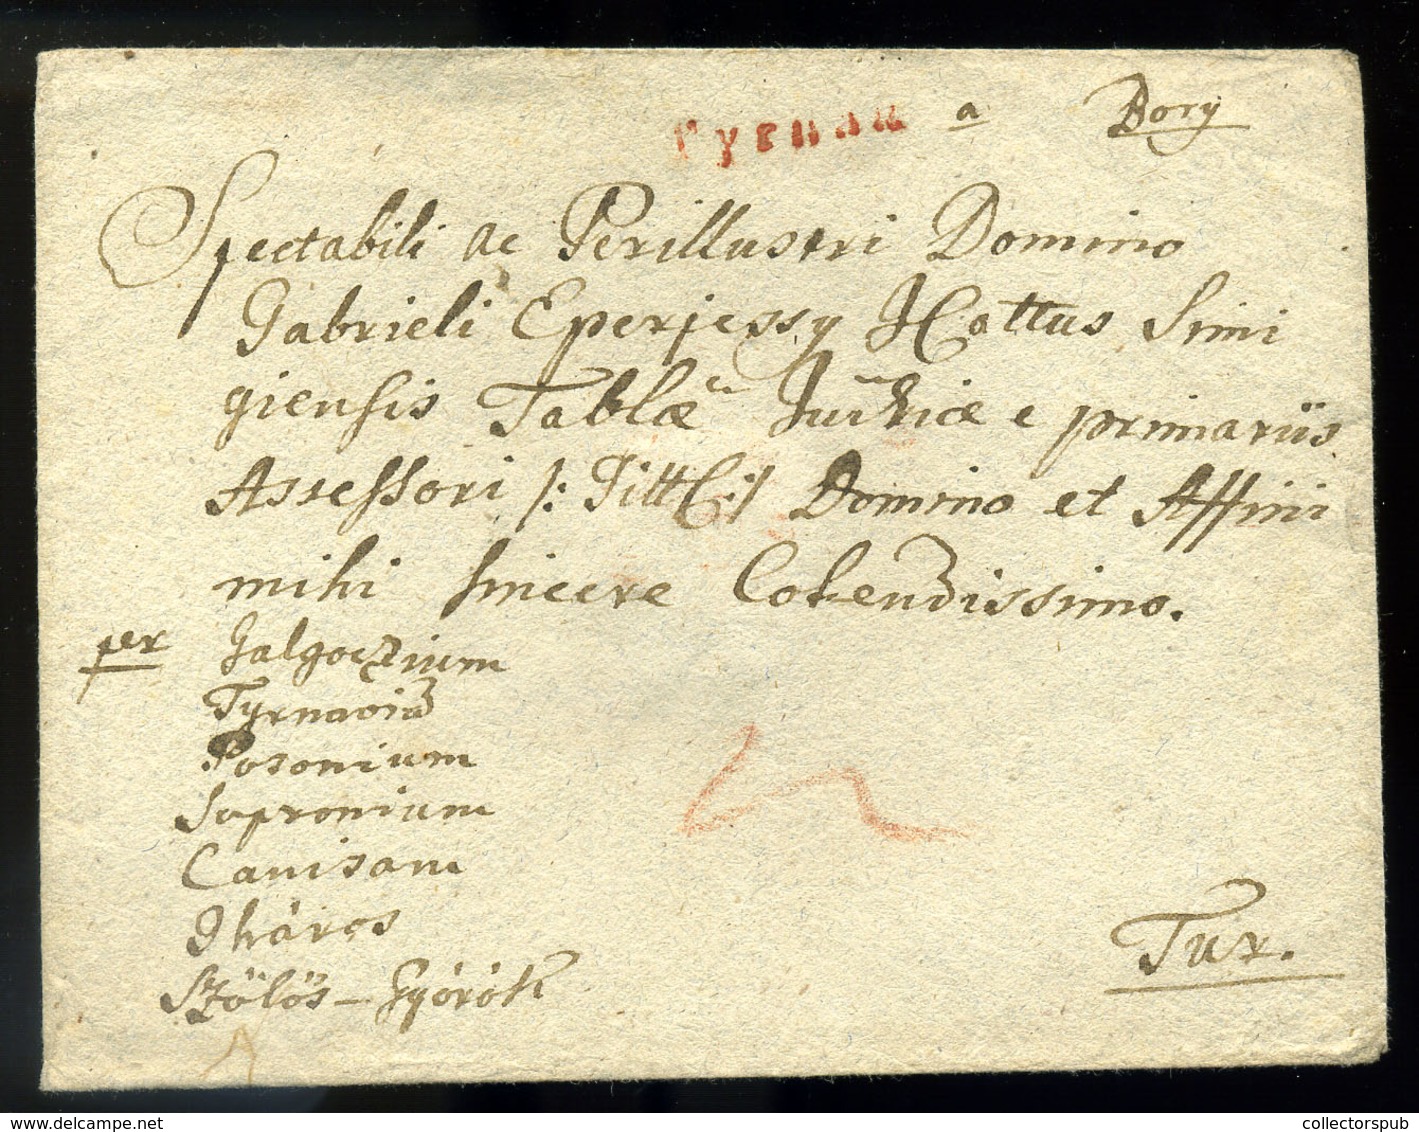 Tyrnau a Dory
Spectabili ac Perillustri Domino
Gabrieli Eperjessy ICottus Simi
giensis Tablae Jud͞riae e primariis
Assessori /: Titt :/ Domino et Affini
mihi sincere Colendissimo.
per Galgoczium
Tyrnaviam
Posonium
Sopronium
Canisam
Iháros
Szölös - Györök
Tur.
collectorspub